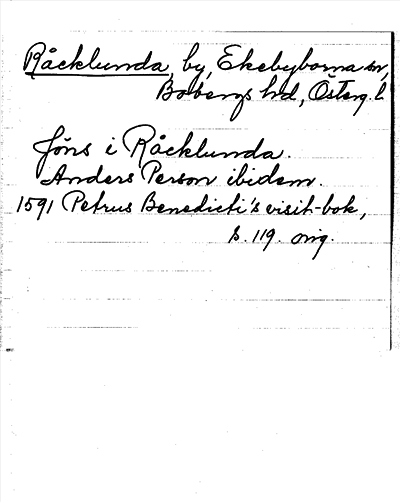 Råcklunda, by, Ekebyborna sn,
Bobergs hd, Österg. l
Jöns i Råcklunda.
Anders Person ibidem.
1591 Petrus Benedicti's visit-bok,
s. 119. orig.